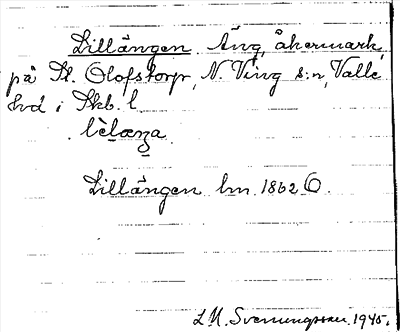 Lillängen Äng, åkermark,
på St. Olofstorp, N. Ving s:n, Valle
hd i Skb. l.
Lillängen lm 1862 6.
L.M. Svenungsson 1945.